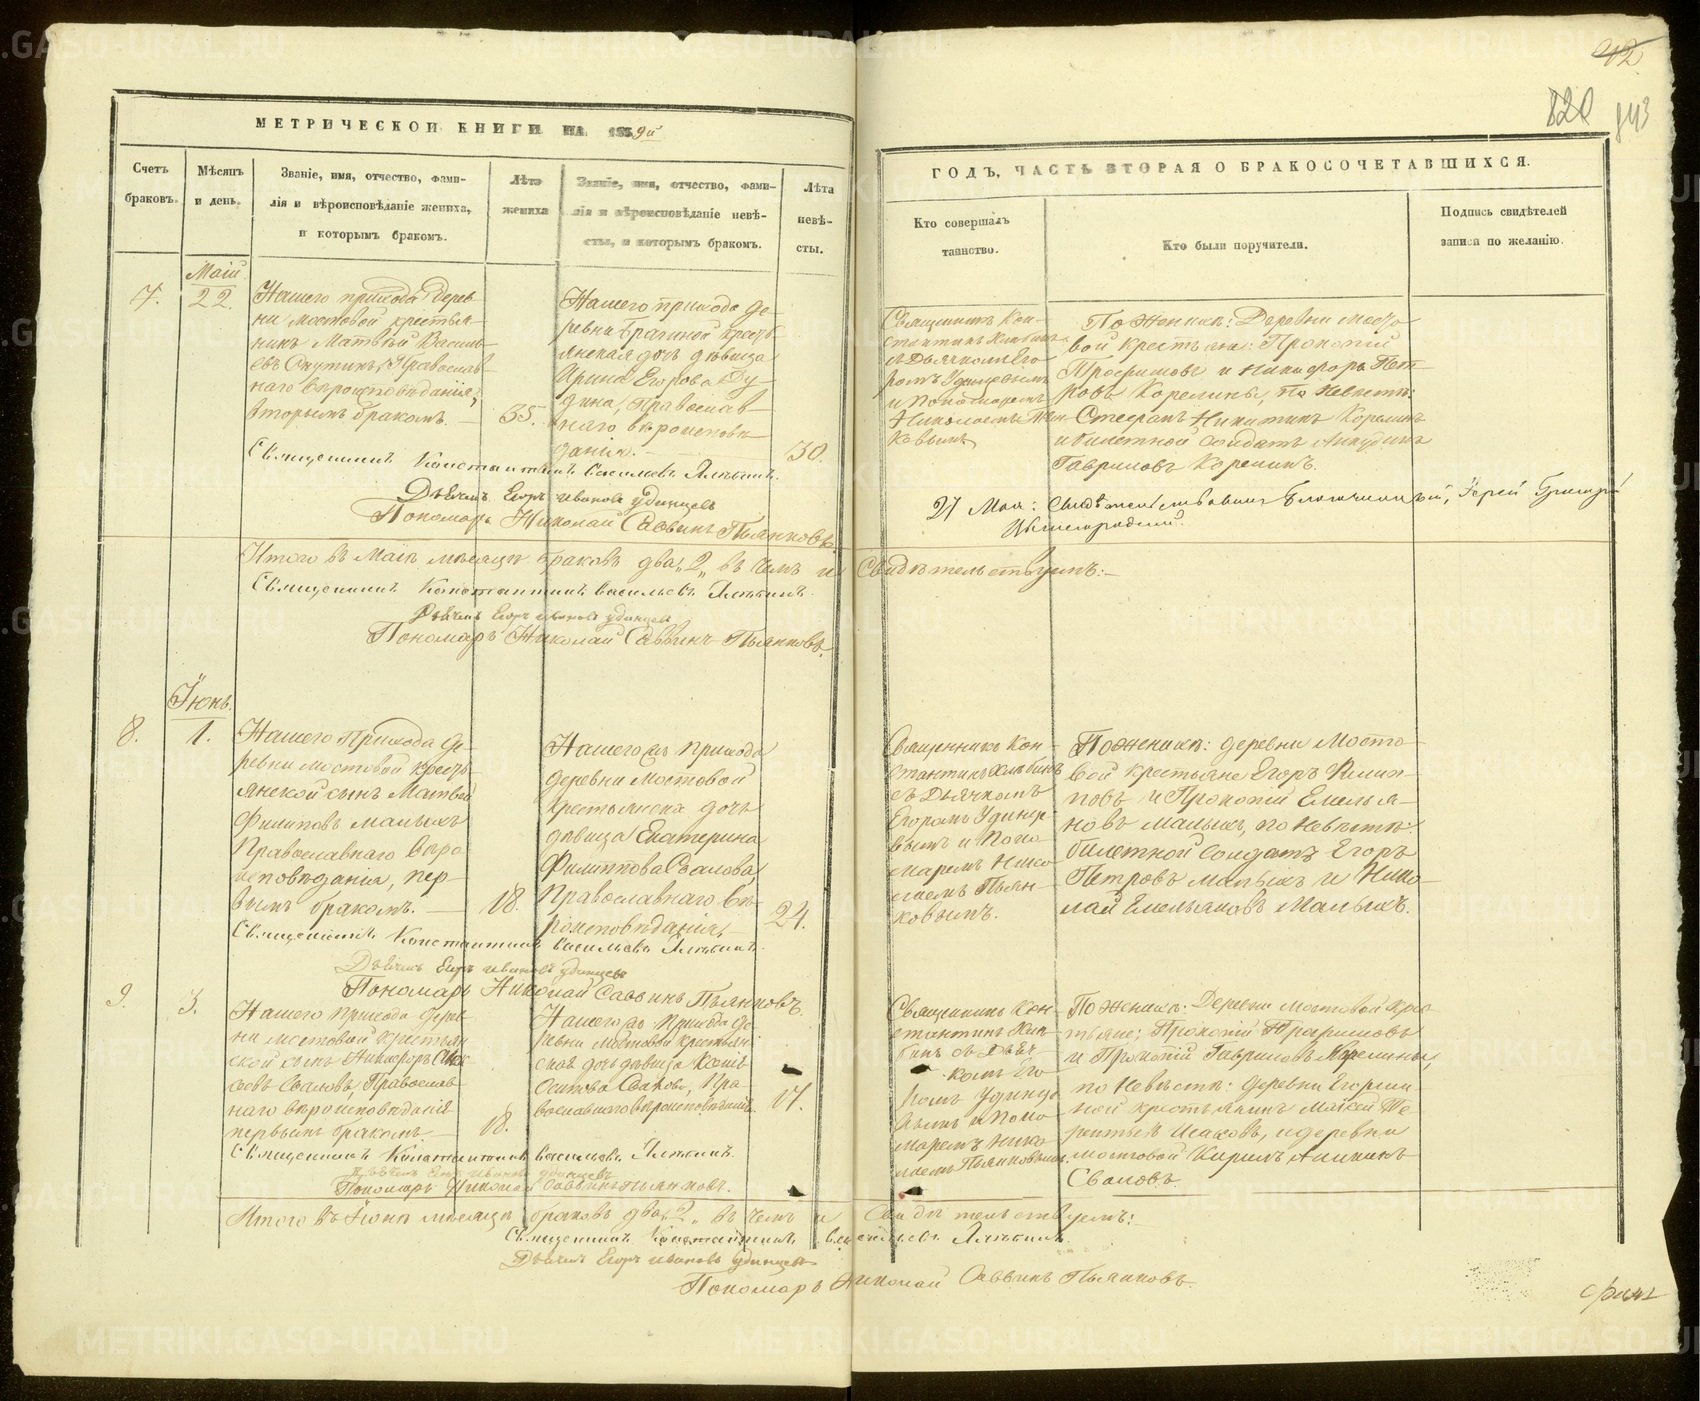 42
820
843
МЕТРИЧЕСКОЙ КНИГИ НА 1859й
ГОДЪ, ЧАСТЬ ВТОРАЯ О БРАКОСОЧЕТАВШИХСЯ.
Счетъ
браковъ.
Мѣсяцъ
и день.
Званіе, имя, отчество, фами-
лія и вѣроисповѣданіе жениха,
и которымъ бракомъ.
Лѣто
жениха
Званіе, имя, отчество, фами-
лія и вѣроисповѣданіе невѣ-
сты, и которымъ бракомъ.
Лѣта
невѣ-
сты.
Кто совершалъ
таинство.
Кто были поручители.
Подпись свидѣтелей
записи по желанію.
Маій
7.
22
Нашего прихода Дерев-
ни Мостовой крестья-
нинъ Матвѣй Василь-
евъ Православ-
наго вѣроисповѣданія,
вторымъ бракомъ.
35.
Нашего прихода де-
ревни крестъ-
янская дочь дѣвица
Ирина Егорова
Православ-
наго вѣроисповѣ-
данія.
30.
Священникъ Кон-
стантинъ
съ Дьячкомъ Его-
ромъ Удинцевымъ
и Пономаремъ
Николаемъ Пьян-
ковымъ
По Женихѣ: Деревни Мосто-
вой крестьяне: Прокопій
Трофимовъ и Никифоръ Пет-
ровъ Корелины, по Невѣстѣ:
Никитинъ Корелинъ
и билетной солдатъ
Гавриловъ Корелинъ.
Священникъ Константинъ Васильевъ
Дьячекъ Егоръ Ивановъ Удинцевъ
Пономарь Николай Саввинъ Пьянковъ.
21 Мая: Свидѣтельствовалъ Благочинный, Іерей Григорій
Итого въ Маіѣ мѣсяцѣ браковъ два „2„ въ чемъ и свидѣтельствуемъ:
Священникъ Константинъ Васильевъ
Дьячекъ Егоръ Ивановъ Удинцевъ
Пономарь Николай Саввинъ Пьянковъ.
Іюнь.
8.
1.
Нашего Прихода де-
ревни Мостовой кресть-
янской сынъ Матвей
Филиповъ Малыхъ
Православнаго Вѣро-
исповѣданія, пер-
вымъ бракомъ.
18.
Нашего жъ прихода
деревни Мостовой
крестьянска дочь
дѣвица Екатерина
Филиппова Свалова,
Православнаго Вѣ-
роисповѣданія,
24.
Священникъ Кон-
стантинъ
съ Дьячкомъ
Егоромъ Удинце-
вымъ и Поно-
маремъ Нико-
лаемъ Пьян-
ковымъ.
По Женихѣ: деревни Мосто-
вой крестьяне Егоръ Филип-
повъ и Прокопій Емелья-
новъ Малыхъ, по Невѣстѣ:
билетной солдатъ Егоръ
Петровъ Малыхъ и Нико-
лай Емельяновъ Малыхъ.
Священникъ Константинъ Васильевъ
Дьячекъ Егоръ Ивановъ Удинцевъ
Пономарь Николай Саввинъ Пьянковъ.
9.
3.
Нашего Прихода дерев-
ни Мостовой крестьян-
ской сынъ Никифоръ
Сваловъ, Православ-
наго вѣроисповѣданія
первымъ бракомъ.
18.
Нашего жъ Прихода де-
ревни Мостовой крестьян-
ская дочь дѣвица Ксенія
Осипова Пра-
вославнаго вѣроисповѣданія.
17.
Священникъ Кон-
стантинъ
съ Дьяч-
комъ Его-
ромъ Удинце-
вымъ и Поно-
маремъ Нико-
лаемъ Пьянковымъ.
По Женихѣ: Деревни Мостовой Крес-
тьяне; Прокопій Трофимовъ
и Прокопій Гавриловъ Корелины,
по Невѣстѣ: деревни
крестьянинъ Те-
рентьевъ Исаковъ, и деревни
Мостовой Кирилъ Аникинъ
Сваловъ.
Священникъ Константинъ Васильевъ
Дьячекъ Егоръ Ивановъ Удинцевъ
Пономарь Николай Саввинъ Пьянковъ.
Итого въ Іюнѣ мѣсяцѣ браковъ два „2„ въ чемъ и свидѣтельствуемъ:
Священникъ Константинъ Васильевъ
Дьячекъ Егоръ Ивановъ Удинцевъ
Пономарь Николай Саввинъ Пьянковъ
METRIKI.GASO-URAL.RU